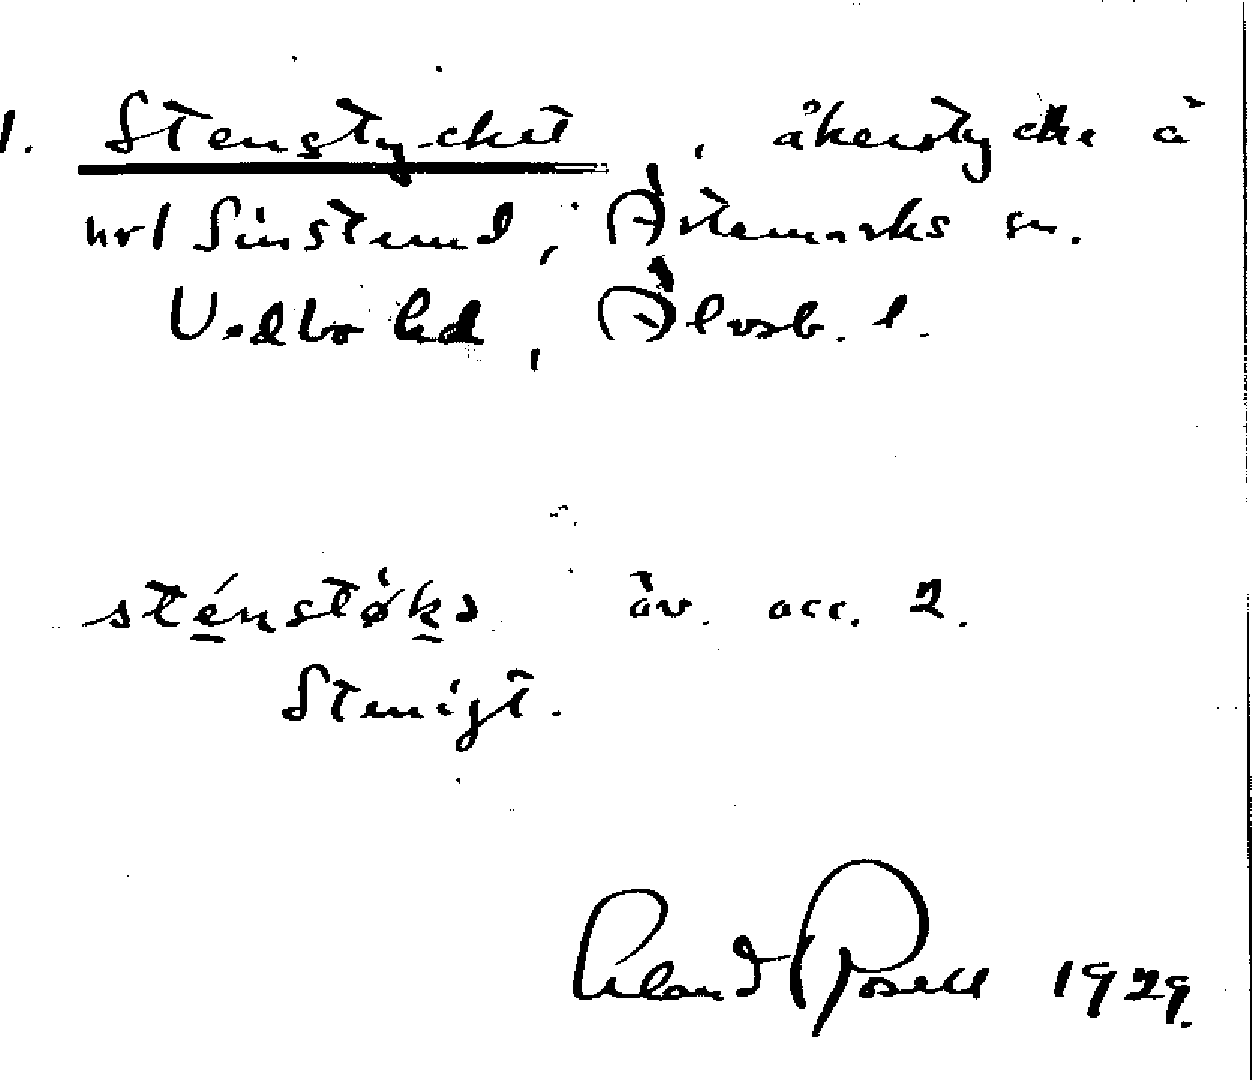 1. Stenstycket, åkerstycke å
nrl Sunstemd, Årtemarks sn.
Vedbo hd, Älvsb. l.
sténstøkə äv. acc. 2.
Stenigt.
Rosell 1929.